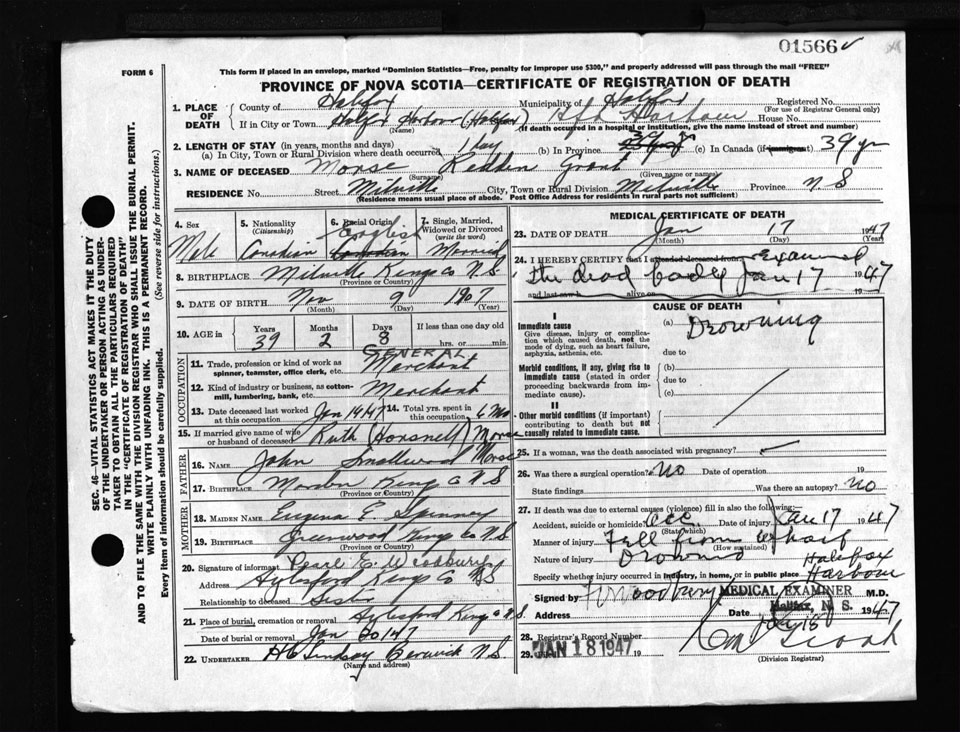 01566
FORM 6
This form if placed in an envelope, marked "Dominion Statistics—Free, penalty for improper use $300," and properly addressed will pass through the mail "FREE"
PROVINCE OF NOVA SCOTIA—CERTIFICATE OF REGISTRATION OF DEATH
1. PLACE OF DEATH
County of Halifax Municipality of Halifax Registered No.
(For use of Registrar General only)
If in City or Town Halifax Harbour (Halifax) Hfx Harbour House No.
(Name) (If death occurred in a hospital or institution, give the name instead of street and number)
2. LENGTH OF STAY (in years, months and days)
(a) In City, Town or Rural Division where death occurred 1 day (b) In Province 39 (c) In Canada (if immigrant) 39 yrs
3. NAME OF DECEASED Morse Redden Grant
(Surname) (Given name or names)
RESIDENCE No. Street Milville City, Town or Rural Division Milville Province N S
(Residence means usual place of abode. Post Office Address for residents in rural parts not sufficient)
4. Sex Male
5. Nationality (Citizenship) Canadian
6. Racial Origin English Canadian
7. Single, Married, Widowed or Divorced (write the word) Married
8. BIRTHPLACE Milville Kings Co N.S.
(Province or Country)
9. DATE OF BIRTH Nov 9 1907
(Month) (Day) (Year)
10. AGE in Years 39 Months 2 Days 8 If less than one day old hrs. or min.
OCCUPATION
11. Trade, profession or kind of work as spinner, teamster, office clerk, etc. GENERAL Merchant
12. Kind of industry or business, as cotton-mill, lumbering, bank, etc. Merchant
13. Date deceased last worked at this occupation Jan 14/47 14. Total yrs. spent in this occupation 6 Mo.
15. If married give name of wife or husband of deceased Ruth (Horsnell) Morse
FATHER
16. NAME John Smallwood Morse
17. BIRTHPLACE Morden Kings Co N.S
(Province or Country)
MOTHER
18. MAIDEN NAME Eugena E. Spinney
19. BIRTHPLACE Greenwood Kings Co N.S
(Province or Country)
20. Signature of informant Pearl E. Woodbury
Address Aylesford Kings Co NS
Relationship to deceased Sister
21. Place of burial, cremation or removal Aylesford Kings Co N.S.
Date of burial or removal Jan 20/47
22. UNDERTAKER H C Lindsay Berwick N.S.
(Name and address)
MEDICAL CERTIFICATE OF DEATH
23. DATE OF DEATH Jan 17 1947
(Month) (Day) (Year)
24. I HEREBY CERTIFY that I attended deceased from Examined
the dead body Jan 17 1947
and last saw h alive on
CAUSE OF DEATH
I
Immediate cause
Give disease, injury or complication which caused death, not the mode of dying, such as heart failure, asphyxia, asthenia, etc.
(a) Drowning
due to
Morbid conditions, if any, giving rise to immediate cause (stated in order proceeding backwards from immediate).
(b)
due to
(c)
II
Other morbid conditions (if important) contributing to death but not causally related to immediate cause.
25. If a woman, was the death associated with pregnancy?
26. Was there a surgical operation? No Date of operation 19
State findings Was there an autopsy? no
27. If death was due to external causes (violence) fill in also the following:
Accident, suicide or homicide? acc. Date of injury Jan 17 1947
(State which)
Manner of injury Fell from wharf
(How sustained)
Nature of injury Drowning
Specify whether injury occurred in industry, in home, or in public place Halifax Harbour
Signed by Woodbury MEDICAL EXAMINER M.D.
Address Halifax, N. S. Date 18 1947
28. Registrar's Record Number
29. JAN 18 1947 19
(Division Registrar)
SEC. 46—VITAL STATISTICS ACT MAKES IT THE DUTY
OF THE UNDERTAKER OR PERSON ACTING AS UNDERTAKER TO OBTAIN ALL THE PARTICULARS REQUIRED
IN THE "CERTIFICATE OF REGISTRATION OF DEATH"
AND TO FILE THE SAME WITH THE DIVISION REGISTRAR WHO SHALL ISSUE THE BURIAL PERMIT.
WRITE PLAINLY WITH UNFADING INK. THIS IS A PERMANENT RECORD.
Every item of information should be carefully supplied. (See reverse side for instructions.)